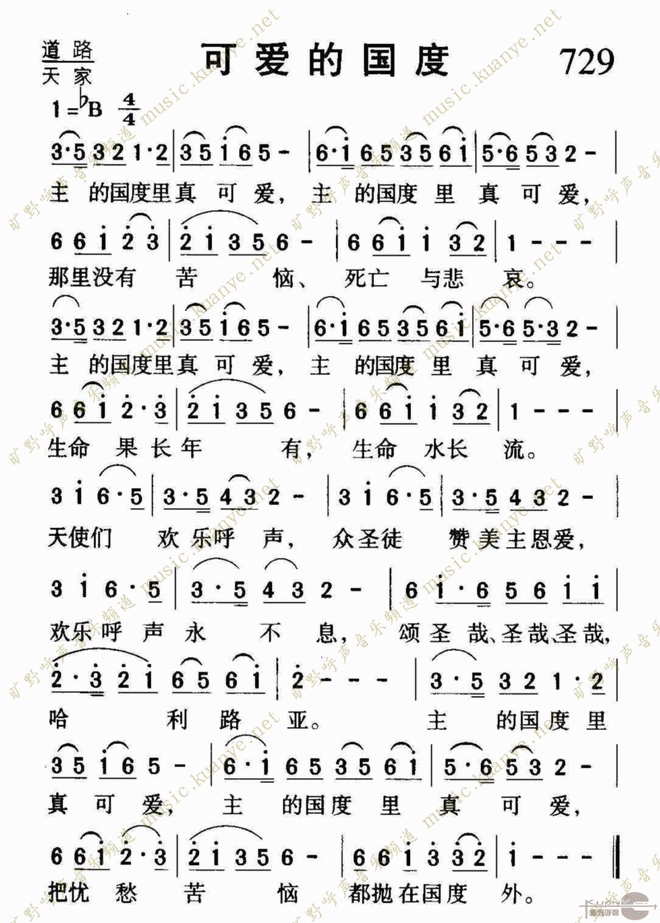 道路
天家
可爱的国度
729
1=♭B 4/4
3·5 3 2 1·2 | 3 5 i 6 5 - | 6·i 6 5 3 5 6 i | 5·6 5 3 2 - |
主 的国度里真可爱，主 的国度 里 真 可爱，
6 6 i 2 3 | 2 i 3 5 6 - | 6 6 i i 3 2 | 1 - - - |
那里没有 苦 恼、死亡 与悲 哀。
3·5 3 2 1·2 | 3 5 i 6 5 - | 6·i 6 5 3 5 6 i | 5·6 5·3 2 - |
主 的国度里真可爱，主 的国度 里 真 可爱，
6 6 i 2·3 | 2 i 3 5 6 - | 6 6 i i 3 2 | 1 - - - |
生命 果长年 有，生命 水长 流。
3 i 6·5 | 3·5 4 3 2 - | 3 i 6·5 | 3·5 4 3 2 - |
天使们 欢乐呼声，众圣徒 赞美主恩爱，
3 i 6·5 | 3·5 4 3 2 - | 6 i·6 5 6 i i |
欢乐呼声永 不 息，颂圣哉、圣哉、圣哉，
2·3 2 i 6 5 6 i | 2 - - - | 3·5 3 2 1·2 |
哈 利路 亚。 主 的国度里
3 5 i 6 5 - | 6·i 6 5 3 5 6 i | 5·6 5 3 2 - |
真可爱，主 的国度 里 真 可爱，
6 6 i 2 3 | 2 i 3 5 6 - | 6 6 i 2 3 2 | i - - - ‖
把忧 愁 苦 恼 都抛在国度 外。
旷野呼声音乐频道 music.kuanye.net